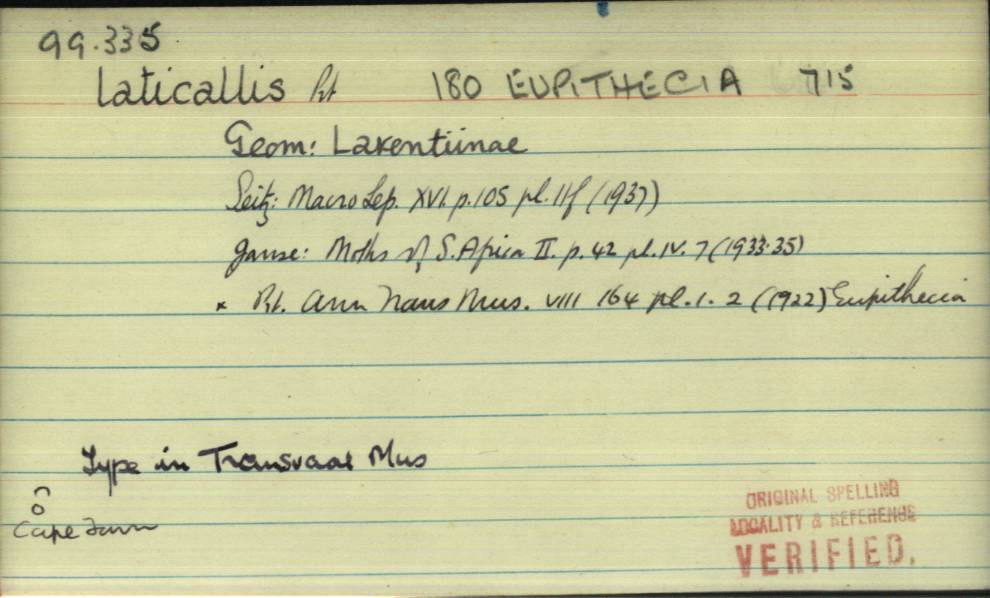 99.335
laticallis Prt 180 EUPITHECIA 715
Geom: Larentiinae
Seitz: Macro Lep. XVI. p.105 pl. 11f (1937)
Janse: Moths of S. Africa II. p. 42 pl. IV. 7 (1933-35)
* Prt. Ann Trans Mus. VIII 164 pl. 1. 2 (1922) Eupithecia
Type in Transvaal Mus
Cape Town
ORIGINAL SPELLING
LOCALITY & REFERENCE
VERIFIED.